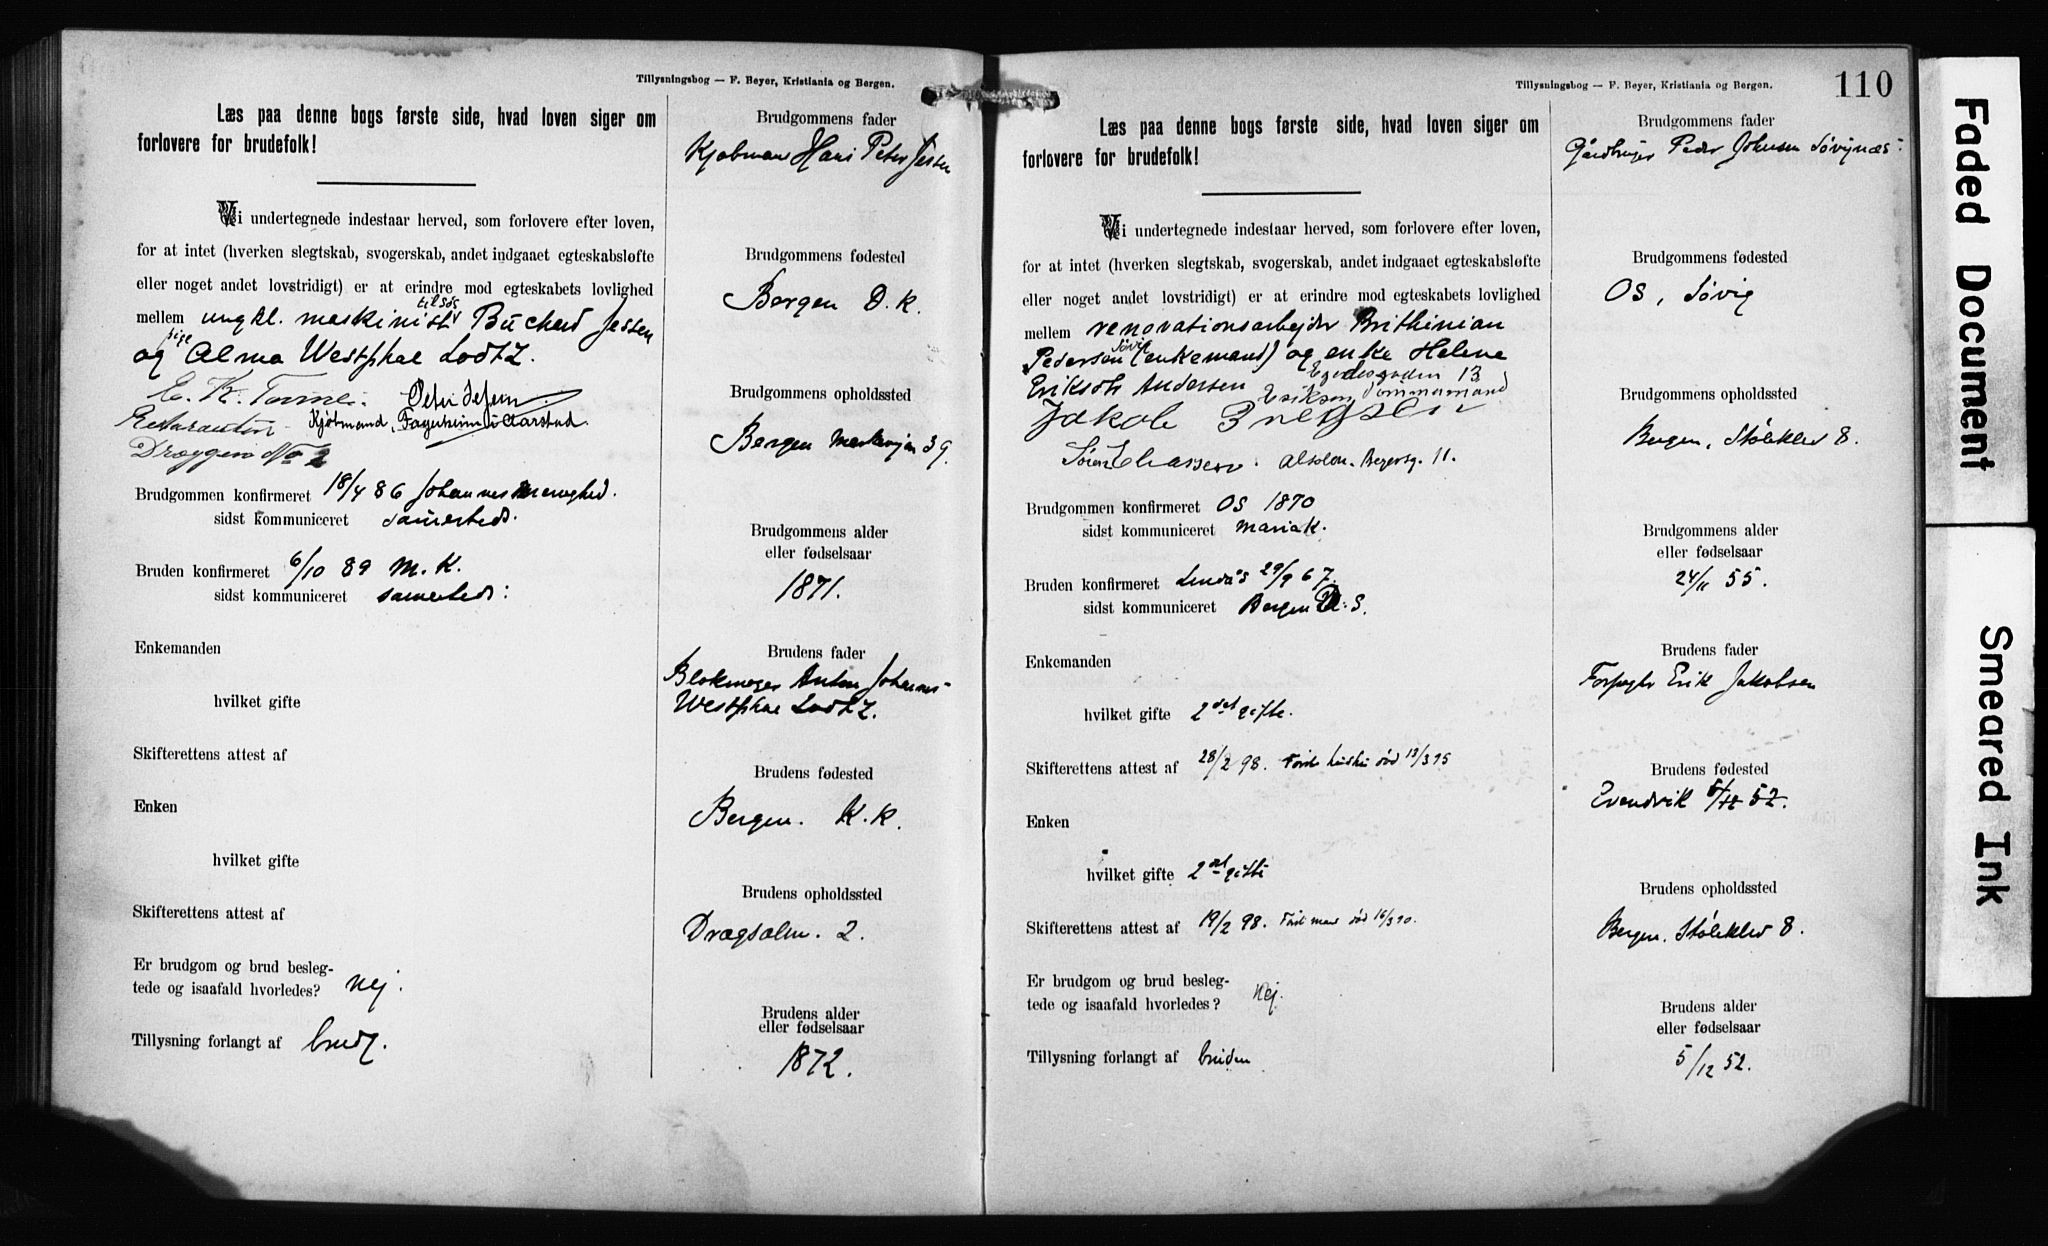 Tillysningsbog — F. Beyer, Kristiania og Bergen.
Læs paa denne bogs første side, hvad loven siger om
forlovere for brudefolk!
Vi undertegnede indestaar herved, som forlovere efter loven,
for at intet (hverken slegtskab, svogerskab, andet indgaaet egteskabsløfte
eller noget andet lovstridigt) er at erindre mod egteskabets lovlighed
til søs
mellem ungkl. maskinist Buchard Jessen
og pige Alma Westphal Lodtz.
E. K.
Kjøbmand, Fagerheim i Aarstad.
Dræggen No 2
Brudgommen konfirmeret 18/4 86 Johannes menighed.
sidst kommuniceret sammesteds.
Bruden konfirmeret 6/10 89 M. K.
sidst kommuniceret sammesteds:
Enkemanden
hvilket gifte
Skifterettens attest af
Enken
hvilket gifte
Skifterettens attest af
Er brudgom og brud besleg-
tede og isaafald hvorledes? Nej.
Tillysning forlangt af brudg.
Brudgommens fader
Kjøbmand Hans Peter Jessen
Brudgommens fødested
Bergen D. K.
Brudgommens opholdssted
Bergen 39.
Brudgommens alder
eller fødselsaar
1871.
Brudens fader
Anton Johannes
Westphal Lodtz.
Brudens fødested
Bergen. K. K.
Brudens opholdssted
Drægsalm. 2.
Brudens alder
eller fødselsaar
1872.
Tillysningsbog — F. Beyer, Kristiania og Bergen.
110
Læs paa denne bogs første side, hvad loven siger om
forlovere for brudefolk!
Vi undertegnede indestaar herved, som forlovere efter loven,
for at intet (hverken slegtskab, svogerskab, andet indgaaet egteskabsløfte
eller noget andet lovstridigt) er at erindre mod egteskabets lovlighed
mellem renovationsarbejder Brithinian
Pedersen Søvig (enkemand) og enke Helene
Eriksdtr Andersen
13
Jakob Eriksen Tømmermand
Absalon Beyersg. 11.
Brudgommen konfirmeret Os 1870
sidst kommuniceret Mariak.
Bruden konfirmeret Lindås 29/9 67.
sidst kommuniceret Bergen
Enkemanden
hvilket gifte 2det gifte.
Skifterettens attest af 28/2 98. Første hustru død 13/3 95
Enken
hvilket gifte 2det gifte
Skifterettens attest af 19/2 98. Første mand død 16/3 90.
Er brudgom og brud besleg-
tede og isaafald hvorledes? Nej.
Tillysning forlangt af bruden
Brudgommens fader
Gårdbruger Peder Johnsen Søvignæs
Brudgommens fødested
Os, Søvig
Brudgommens opholdssted
Bergen, Støleklev 8.
Brudgommens alder
eller fødselsaar
24/11 55.
Brudens fader
Erik Jakobsen
Brudens fødested
Evendvik 5/12 52.
Brudens opholdssted
Bergen. Støleklev 8.
Brudens alder
eller fødselsaar
5/12 52.
Faded Document
Smeared Ink